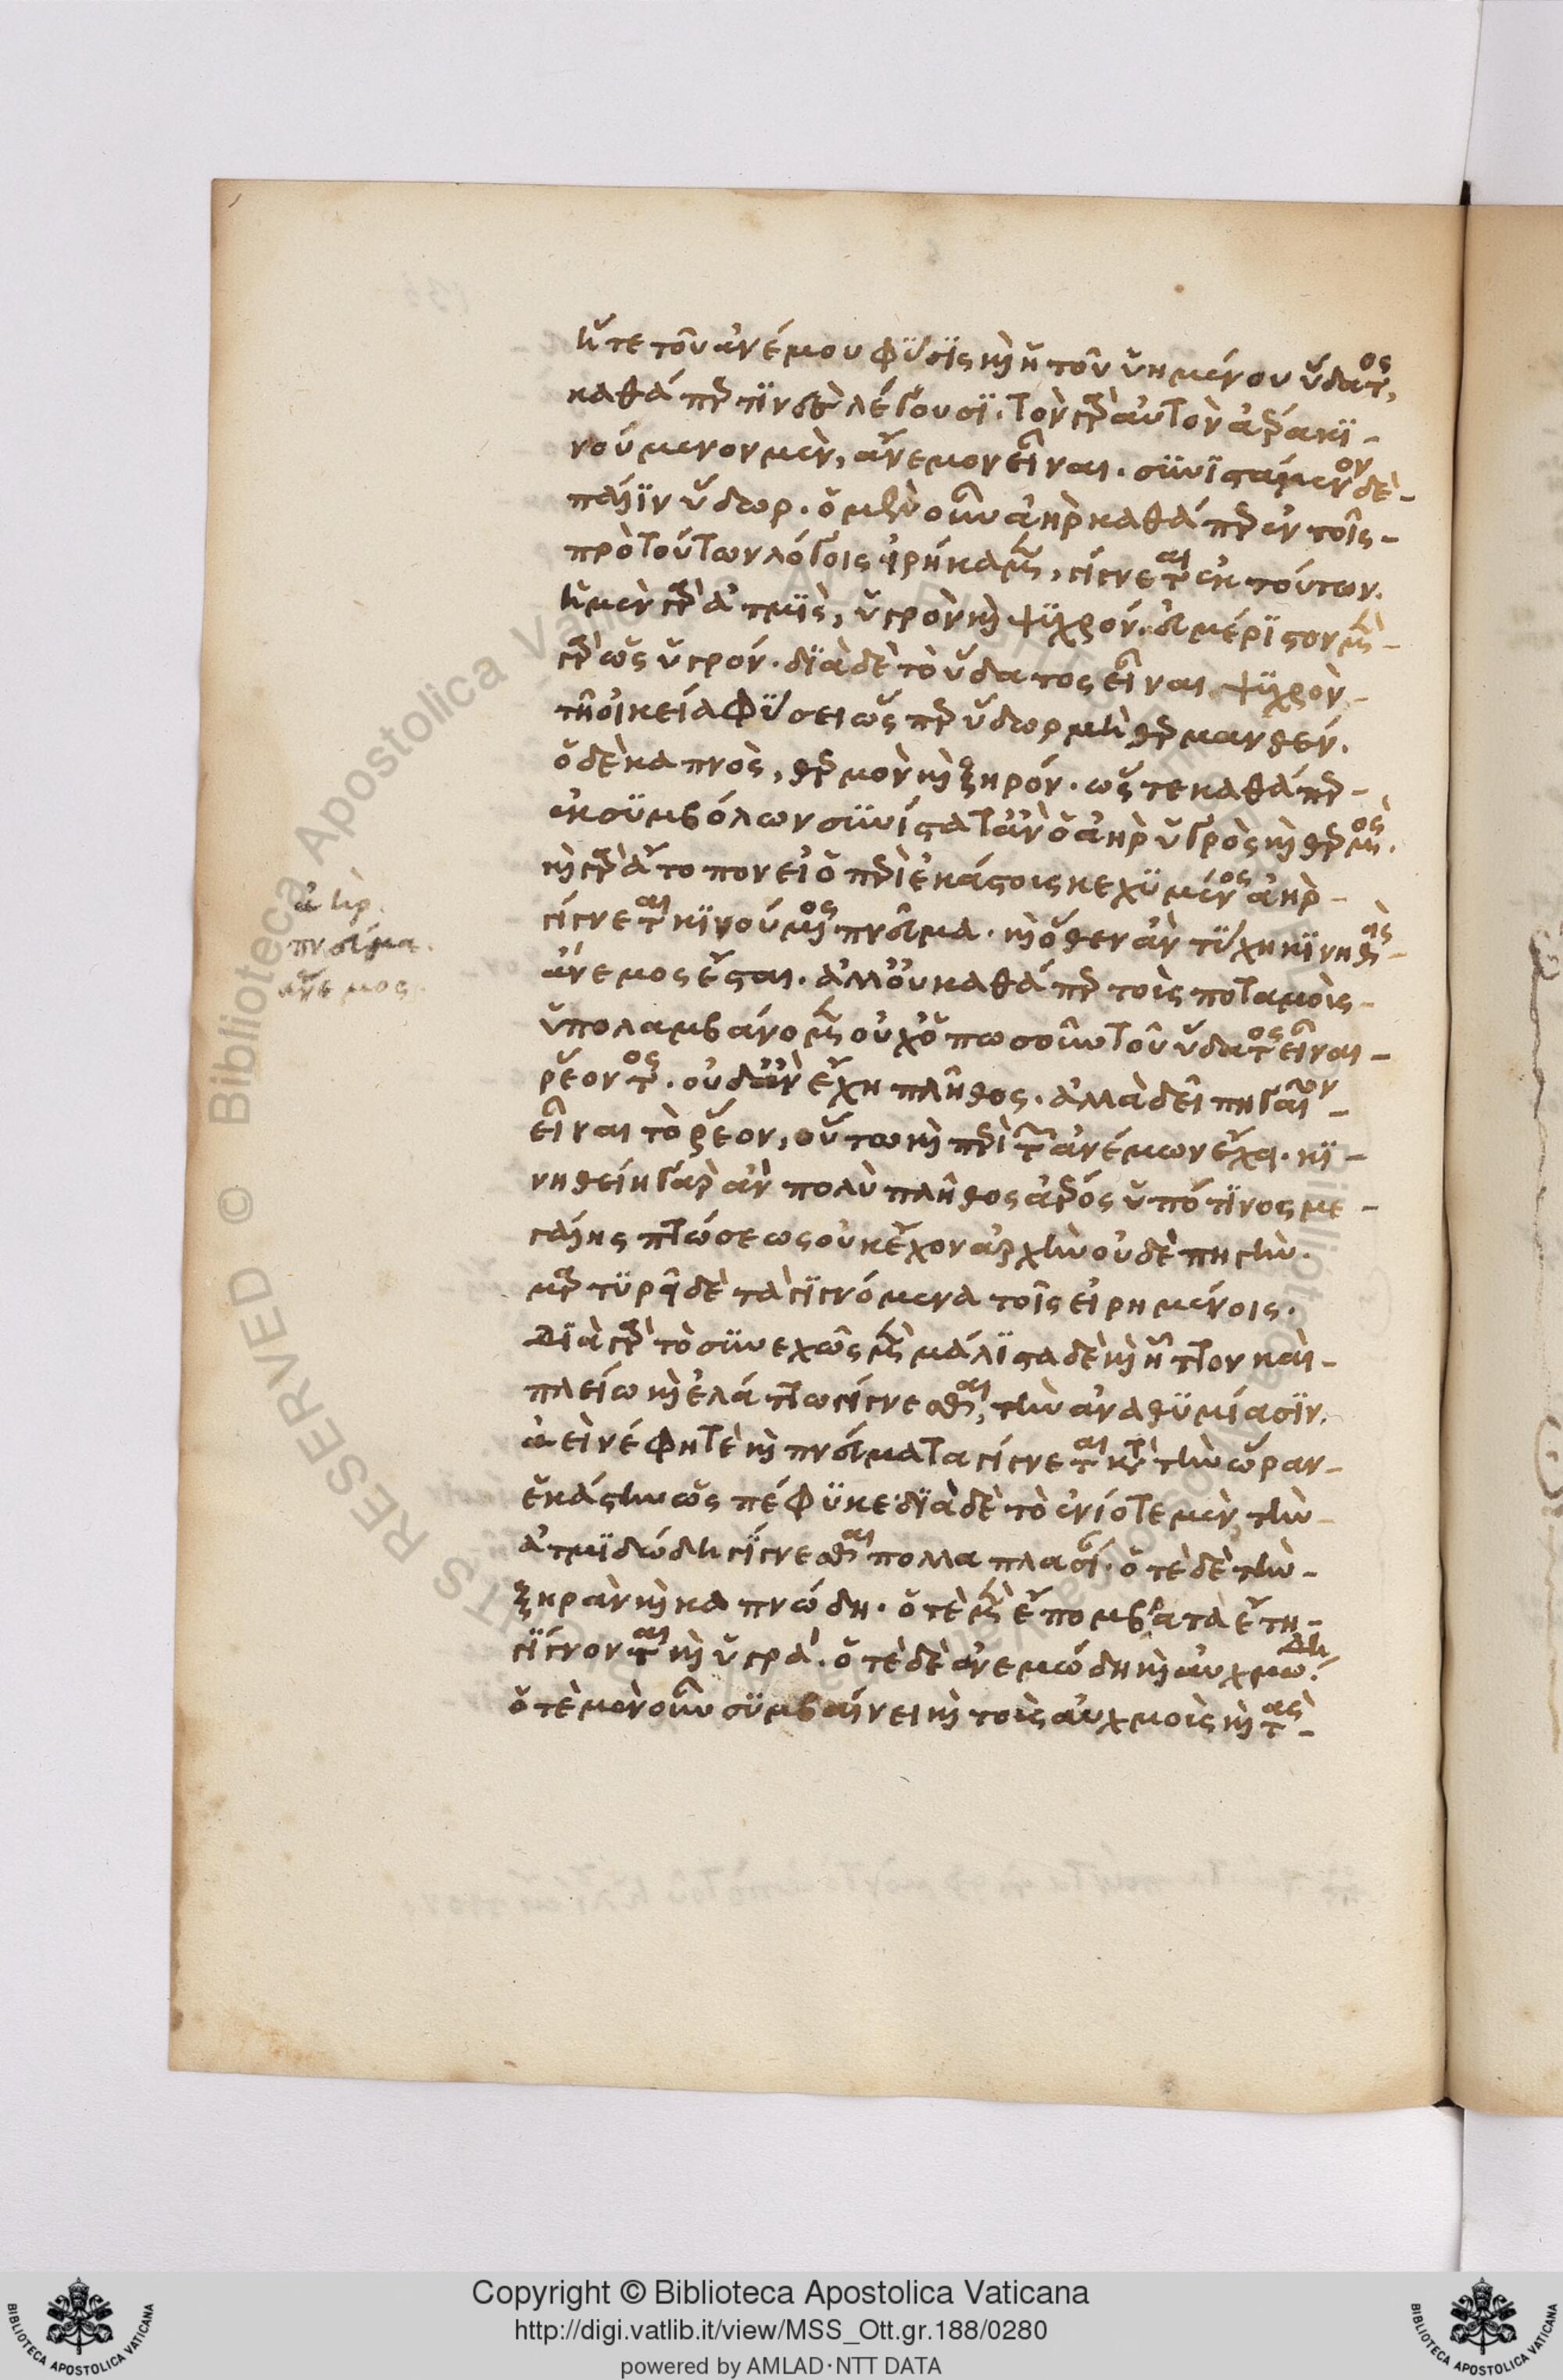 ἥτε τοῦ ἀνέμου φύσις καὶ ἡ τοῦ ὑομένου ὕδατος,
καθάπερ τινὲς λέγουσι. τὸν γὰρ αὐτὸν ἀέρα κι-
νούμενον μὲν, ἄνεμον εἶναι. συνιστάμενον δὲ
πάλιν ὕδωρ. ὁ μὲν οὖν ἀὴρ καθάπερ ἐν τοῖς
πρὸ τούτων λόγοις εἰρήκαμεν, γίγνεται ἐκ τούτων.
ἡ μὲν γὰρ ἀτμὶς, ὑγρὸν καὶ ψυχρόν. εὐόριστον μὲν
γὰρ ὡς ὑγρόν. διὰ δὲ τὸ ὕδατος εἶναι ψυχρὸν
τῇ οἰκεία φύσει ὥσπερ ὕδωρ μὴ θερμανθέν.
ὁ δὲ καπνὸς, θερμὸν καὶ ξηρόν. ὥστε καθάπερ
ἐκ συμβόλων συνίσταται ἂν ὁ ἀὴρ ὑγρὸς καὶ θερμός.
καὶ γὰρ ἄτοπον εἰ ὁ περὶ ἑκάστοις κεχυμένος ἀὴρ
γίγνεται κινούμενος πνεῦμα. καὶ ὅθεν ἂν τύχη κινηθεὶς
ἄνεμος ἔσται. ἀλλ' οὐ καθάπερ τοὺς ποταμοὺς
ὑπολαμβάνομεν οὐχ ὁπωσοῦν τοῦ ὕδατος εἶναι
ῥέοντος. οὐδ' ἂν ἔχη πλῆθος. ἀλλὰ δεῖ πηγαῖον
εἶναι τὸ ῥέον, οὕτω καὶ περὶ τῶν ἀνέμων ἔχει. κι-
νηθείη γὰρ ἂν πολὺ πλῆθος ἀέρος ὑπό τινος με-
γάλης πτώσεως οὐκ ἔχον ἀρχὴν οὐδὲ πηγὴν.
μαρτυρεῖ δὲ τὰ γιγνόμενα τοῖς εἰρημένοις.
Διὰ γὰρ τὸ συνεχῶς μὲν μάλιστα δὲ καὶ ἧττον καὶ
πλείω καὶ ἐλάττω γίγνεσθαι, τὴν ἀναθυμίασιν.
ἀεὶ νέφη τε καὶ πνεύματα γίγνεται κατὰ τὴν ὥραν
ἑκάστην ὡς πέφυκε. διὰ δὲ τὸ ἐνίοτε μὲν, τὴν
ἀτμιδώδη γίγνεσθαι πολλαπλασί. ὁτὲ δὲ τὴν
ξηρὰν καὶ καπνώδη. ὁτὲ μὲν ἔπομβρα τὰ ἔτη
γίγνονται καὶ ὑγρά. ὁτὲ δὲ ἀνεμώδη καὶ αὐχμώδη.
ὁτὲ μὲν οὖν συμβαίνει καὶ τοὺς αὐχμοὺς καὶ τὰς
ἀήρ.
πνεῦμα.
ἄνεμος.
Copyright © Biblioteca Apostolica Vaticana
http://digi.vatlib.it/view/MSS_Ott.gr.188/0280
powered by AMLAD·NTT DATA